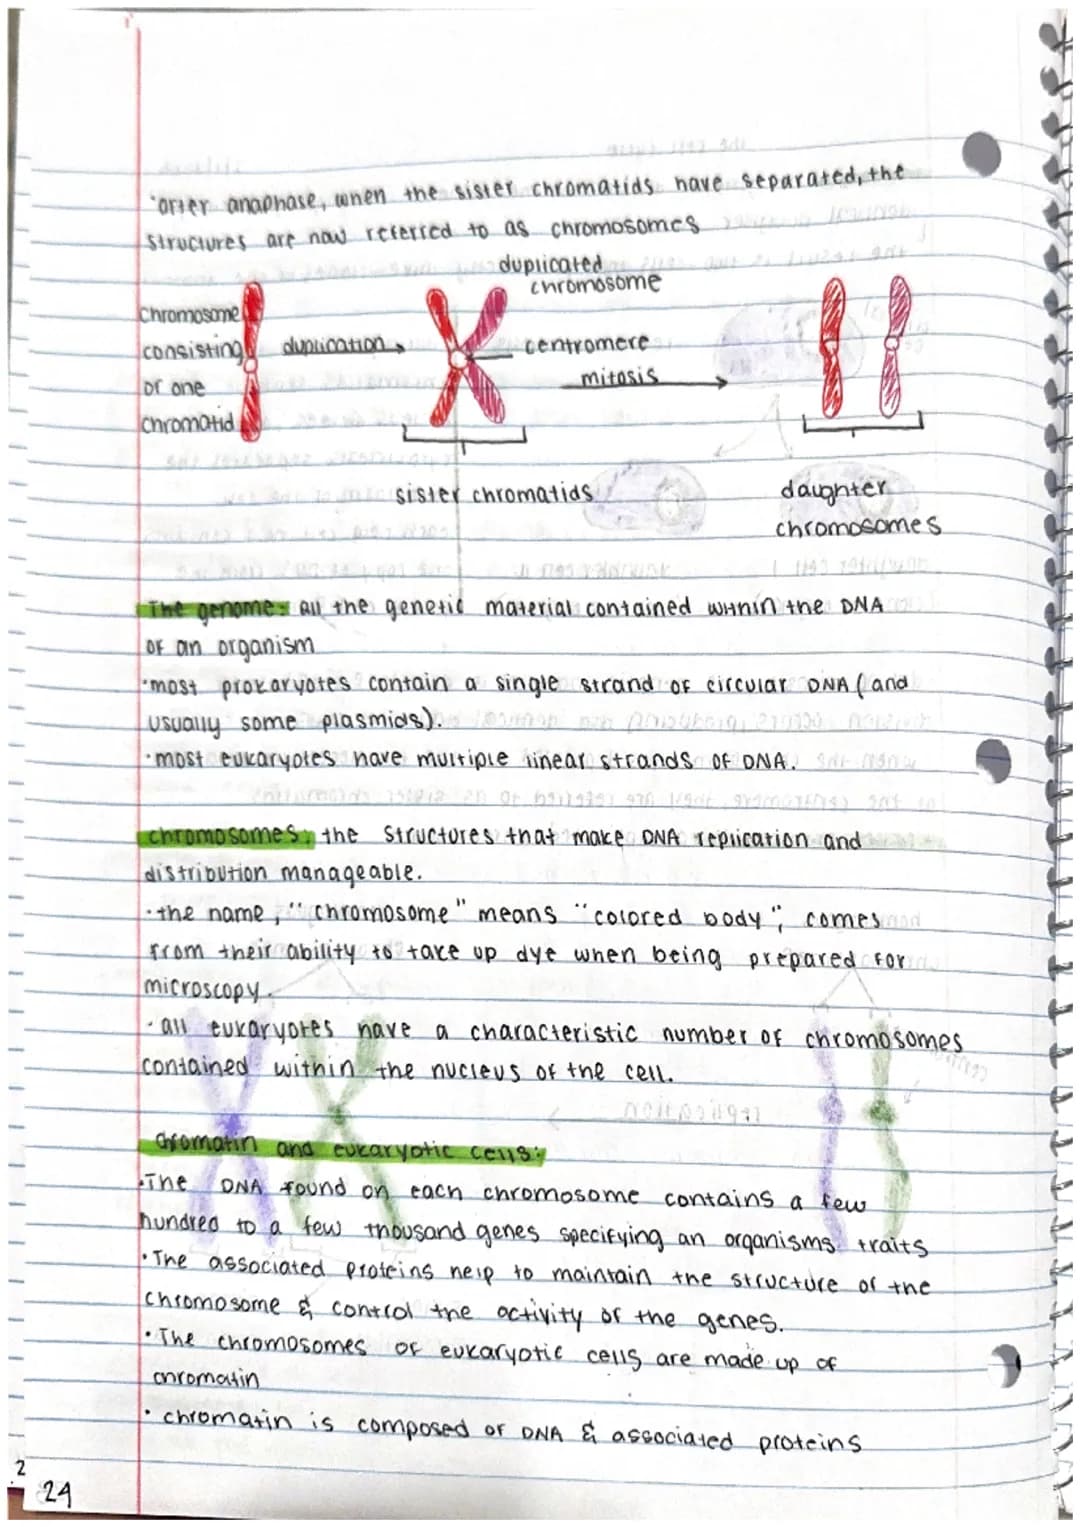 ·after anaphase, when the sister chromatids have separated, the
structures are now referred to as chromosomes
duplicated
chromosome
chromosome
consisting
of one
chromatid
duplication
centromere
mitosis
sister chromatids
daughter
chromosomes
The genome: all the genetic material contained within the DNA
of an organism
·most prokaryotes contain a single strand of circular DNA (and
usually some plasmids).
·most eukaryotes have multiple linear strands of DNA.
chromosomes: the structures that make DNA replication and
distribution manageable.
·the name, "chromosome" means "colored body", comes
from their ability to take up dye when being prepared for
microscopy.
·all eukaryotes have a characteristic number of chromosomes
contained within the nucleus of the cell.
chromatin and eukaryotic cells:
·The DNA found on each chromosome contains a few
hundred to a few thousand genes specifying an organisms traits
·The associated proteins help to maintain the structure of the
chromosome & control the activity of the genes.
·The chromosomes of eukaryotic cells are made up of
chromatin
·chromatin is composed of DNA & associated proteins
2
24